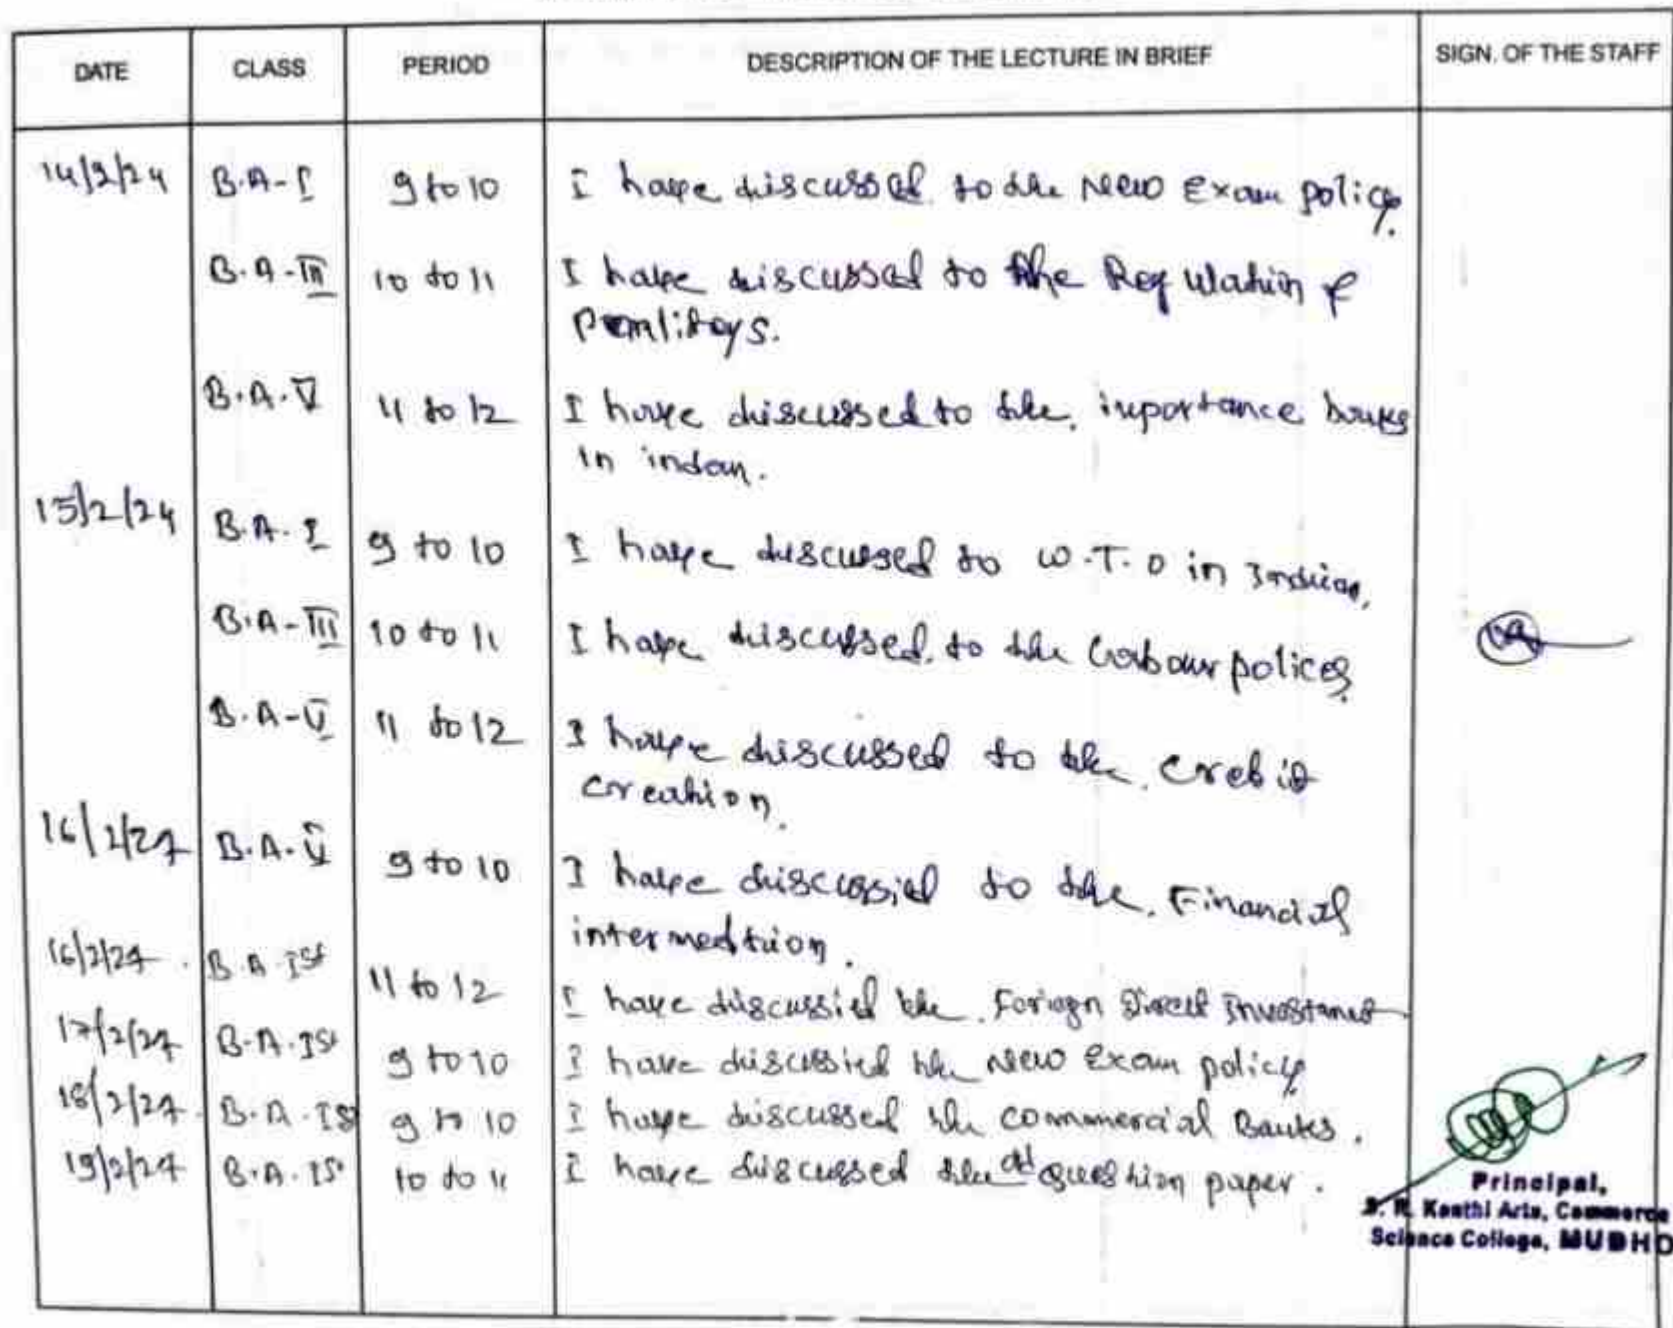 DATE CLASS PERIOD DESCRIPTION OF THE LECTURE IN BRIEF SIGN. OF THE STAFF
14/2/24 B.A-I 9 to 10 I have discussed to the New Exam policy.
B.A-III 10 to 11 I have discussed to the Regulation &
B.A.V 11 to 12 I have discussed to the importance banks
in indan.
15/2/24 B.A.I 9 to 10 I have discussed to W.T.O in Indian.
B.A-III 10 to 11 I have discussed to the Labour polices
B.A-V 11 to 12 I have discussed to the crebit
creation.
16/2/24 B.A.V 9 to 10 I have discussied to the Financial
intermedtion.
16/2/24 B.A Ist 11 to 12 I have discussied the Forign Direct Investment
17/2/24 B.A.Ist 9 to 10 I have discussied the New Exam policy
18/2/24 B.A.Ist 9 to 10 I have discussed the commercial Banks.
19/2/24 B.A.Ist 10 to 11 I have discussed the old question paper.
Principal,
S. R. Kanthi Arts, Commerce
Science College, MUDHO